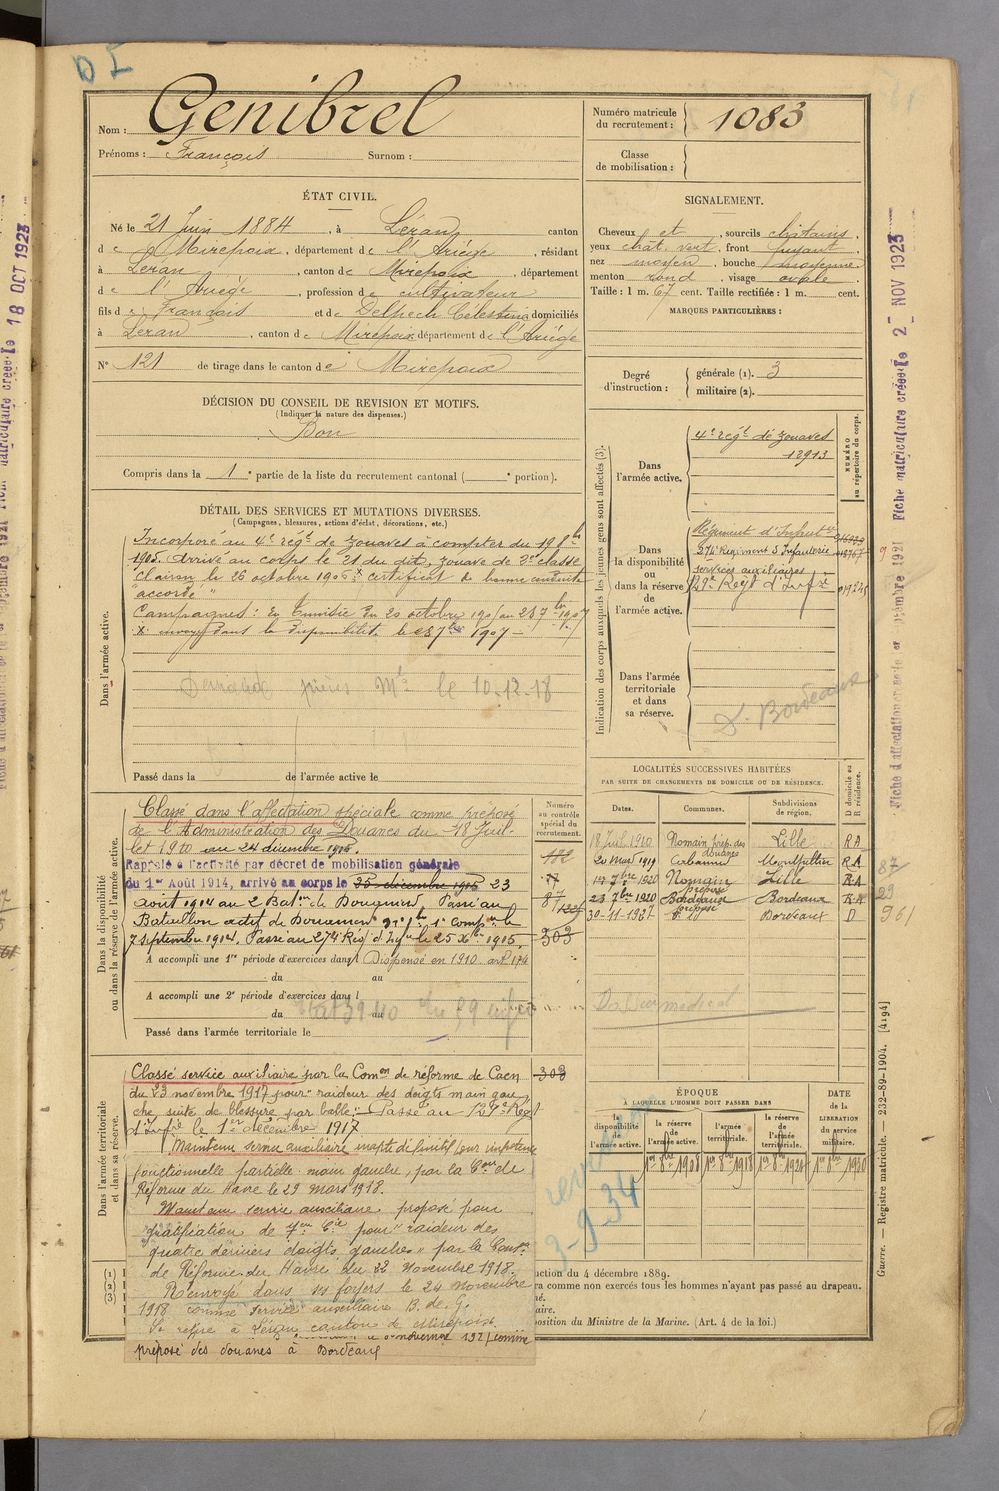 D I
Nom : Genibrel
Prénoms : François Surnom :
Numéro matricule
du recrutement : 1083
Classe
de mobilisation :
ÉTAT CIVIL.
Né le 21 Juin 1884, à Léran canton
de Mirepoix, département de l'Ariège, résidant
à Léran, canton de Mirepoix, département
de l'Ariège, profession de cultivateur
fils de François et de Delpech Célestine domiciliés
à Léran, canton de Mirepoix département de l'Ariège
N° 121 de tirage dans le canton de Mirepoix
SIGNALEMENT.
Cheveux et, sourcils châtains,
yeux chat. vert, front fuyant,
nez moyen, bouche moyenne,
menton rond, visage ovale
Taille : 1 m. 67 cent. Taille rectifiée : 1 m. cent.
MARQUES PARTICULIÈRES :
Degré
d'instruction :
générale (1). 3
militaire (2).
DÉCISION DU CONSEIL DE REVISION ET MOTIFS.
(Indiquer la nature des dispenses.)
Bon
Compris dans la 1e partie de la liste du recrutement cantonal ( e portion).
DÉTAIL DES SERVICES ET MUTATIONS DIVERSES.
(Campagnes, blessures, actions d'éclat, décorations, etc.)
Dans l'armée active.
Incorporé au 4e régt de zouaves à compter du 198bre
1905. Arrivé au corps le 21 du dit, zouave de 2e classe
Clairon le 26 octobre 1906 X certificat de bonne conduite
"accordé"
Campagnes : En Tunisie du 20 octobre 1905 au 237bre 1907
X. envoyé dans la disponibilité le 287bre 1907
le 10-12-18
Passé dans la de l'armée active le
Indication des corps auxquels les jeunes gens sont affectés (3).
NUMÉRO
au répertoire du corps.
Dans
l'armée active.
4e régt de zouaves
12913
Dans
la disponibilité
ou
dans la réserve
de
l'armée active.
Régiment d'Infanterie
274e Régiment d'Infanterie
services auxiliaires
129e Regt d'Infie
Dans l'armée
territoriale
et dans
sa réserve.
D. Bordeaux
Dans la disponibilité
ou dans la réserve de l'armée active.
Numéro
au contrôle
spécial du
recrutement.
Classé dans l'affectation spéciale comme préposé
de l'Administration des Douanes du 18 Juil-
let 1910 au 24 décembre 1915.
Rappelé à l'activité par décret de mobilisation générale
du 1er Août 1914, arrivé au corps le 25 décembre 1915 23
août 1914 au 2 Baton de Douaniers Passé au
Bataillon actif de Douaniers
7 septembre 1914, Passé au 274e Rég d'Infie le 25 Xbre 1915,
A accompli une 1re période d'exercices dans l Dispensé en 1910. art 194
du au
A accompli une 2e période d'exercices dans l
du au
Passé dans l'armée territoriale le
182
303
LOCALITÉS SUCCESSIVES HABITÉES
PAR SUITE DE CHANGEMENTS DE DOMICILE OU DE RÉSIDENCE.
Dates. Communes. Subdivisions
de région. D domicile ou
R résidence.
18 Juil. 1910 Nomain prép. des douanes Lille RA
20 Mars 1919 Montpellier RA
17 7bre 1920 Nomain préposé Lille RA
23 7bre 1920 Bordeaux préposé Bordeaux RA
30-11-1927 Bordeaux D
87
29
961
Dans l'armée territoriale
et dans sa réserve.
Classé service auxiliaire par la Comon de réforme de Caen
du 23 novembre 1917 pour "raideur des doigts main gau-
che, suite de blessure par balle". Passé au 129e Régt
d'Infie le 1er décembre 1917
Maintenu service auxiliaire inapte définitif pour impotence
fonctionnelle partielle main gauche, par la Con de
Réforme du Havre le 29 mars 1918.
Maintenu service auxiliaire. proposé pour
gratification de 7me Cie pour "raideur des
quatre derniers doigts gauches" par la Comon
de Réforme du Havre du 22 novembre 1918.
Renvoyé dans ses foyers le 24 novembre
1918 comme service auxiliaire B. de g.
Se retire à Léran canton de Mirepoix.
novembre 1927 comme
préposé des douanes à Bordeaux
303
ÉPOQUE
À LAQUELLE L'HOMME DOIT PASSER DANS
DATE
de la
LIBÉRATION
du service
militaire.
la
disponibilité
de
l'armée active.
la réserve
de
l'armée active.
l'armée
territoriale.
la réserve
de
l'armée
territoriale.
1er 8bre 1908 1er 8bre 1918 1er 8bre 1924 1er 8bre 1930
3-9-34
(1) I
(2) I
(3) I
uction du 4 décembre 1889.
ra comme non exercés tous les hommes n'ayant pas passé au drapeau.
né.
aire.
position du Ministre de la Marine. (Art. 4 de la loi.)
Guerre. — Registre matricule. — 232-89-1904. [4194]
Fiche matriculaire créée le 2 NOV 1923
18 OCT 1923